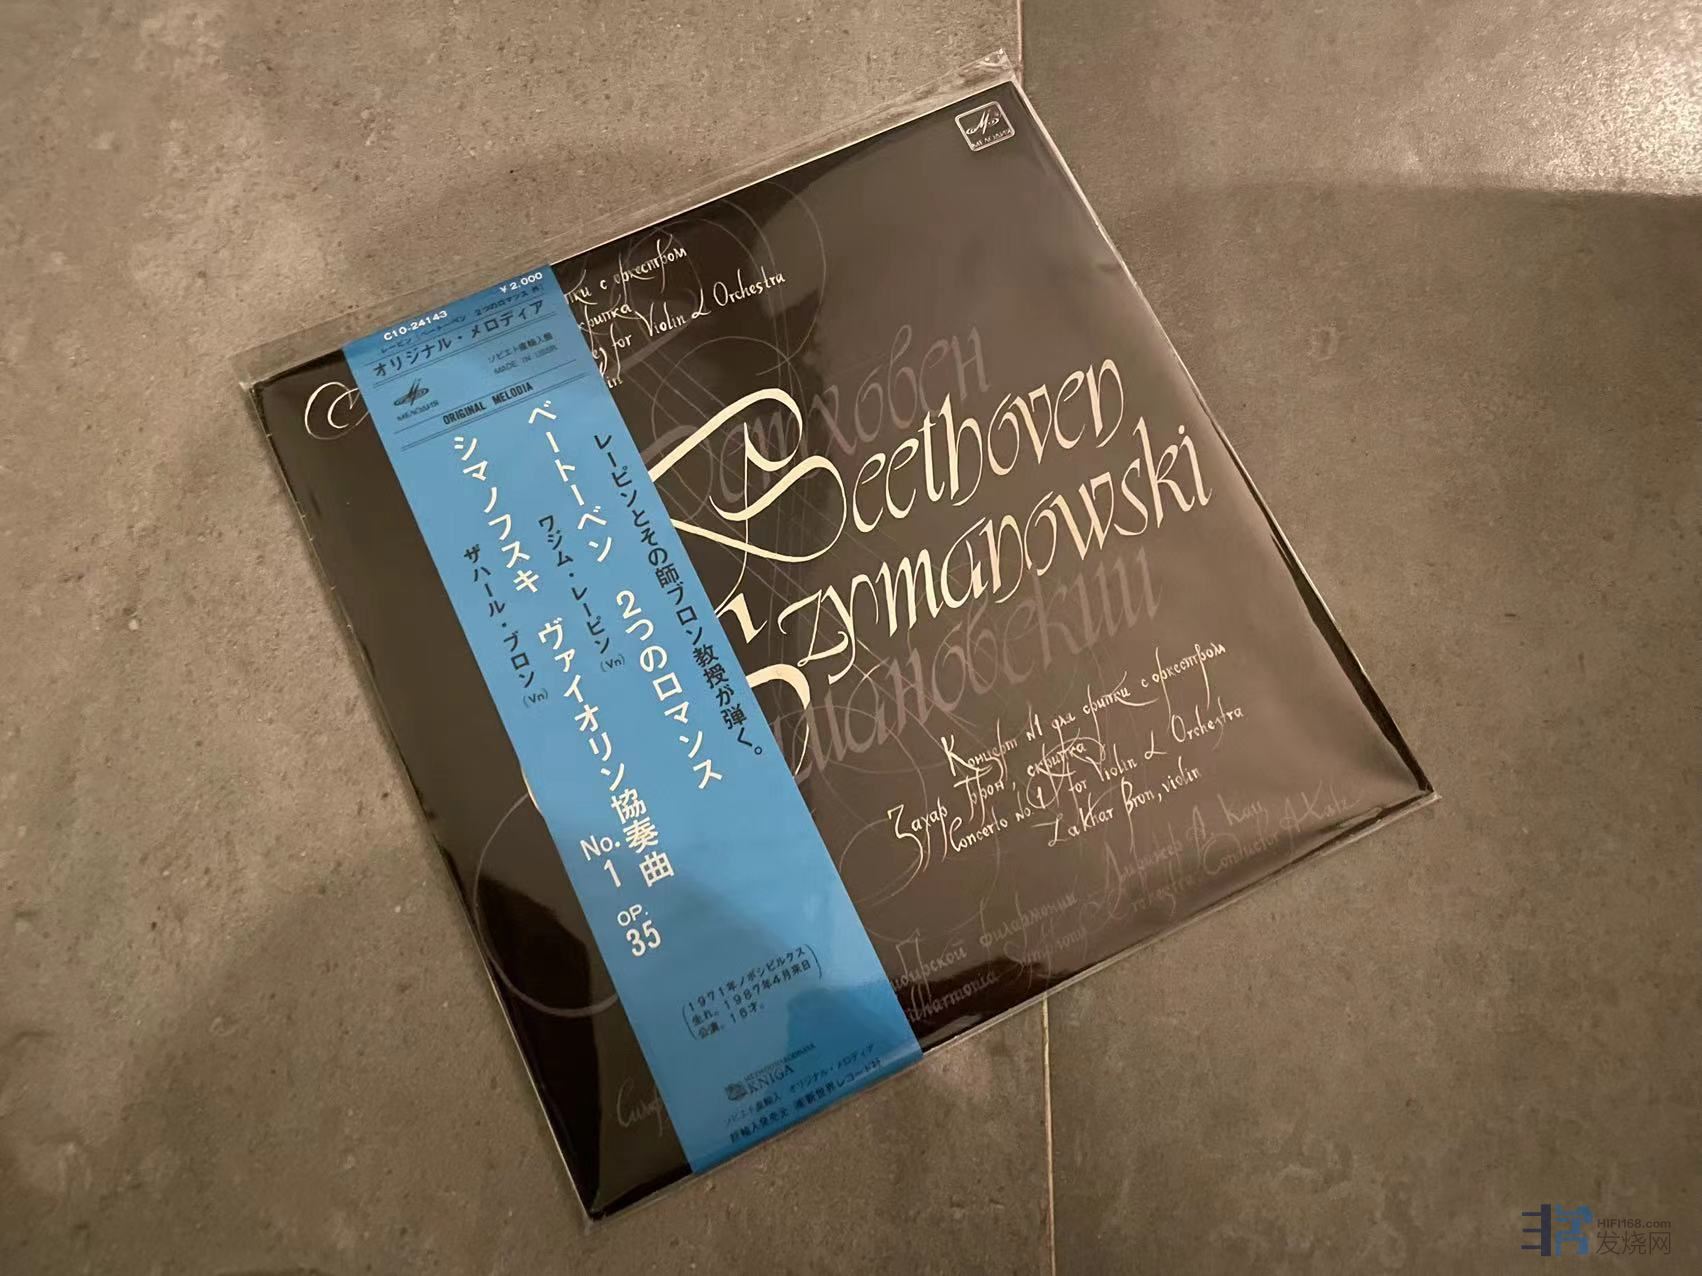 МЕЛОДИЯ
с оркестром
for Violin & Orchestra
C10-24143
¥2,000
レーピン ベートーベン 2つのロマンス 他
オリジナル・メロディア
ソビエト直輸入盤
MADE IN USSR
МЕЛОДИЯ
ORIGINAL MELODIA
レーピンとその師ブロン教授が弾く。
ベートーベン 2つのロマンス
ワジム・レーピン(Vn)
シマノフスキ ヴァイオリン協奏曲 No.1 OP.35
ザハール・ブロン(Vn)
(1971年ノボシビルクス
生れ。1987年4月来日
公演。16才。)
MEZHDUNARODNAYA
KNIGA
ソビエト直輸入 オリジナル・メロディア
Бетховен
Beethoven
Szymanowski
Шимановский
Концерт №1 для скрипки с оркестром
Захар Брон, скрипка
Concerto no. 1 for Violin & Orchestra
Zakhar Bron, violin
филармонии Дирижер А. Кац
Philharmonia Symphony Orchestra Conductor A. Katz
HIFI168.com
发烧网